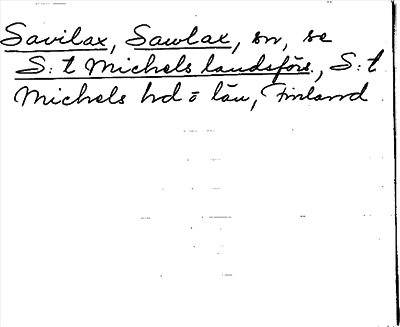 Savilax, Sawlax, sn, se
S:t Michels landsförs., S:t
Michels hd o län, Finland